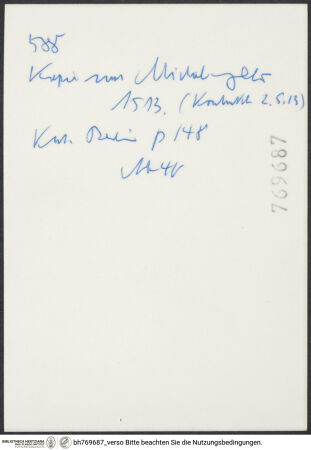 585
Kopie von Michelangelo
1513. (Kontrakt 2.5.13)
Kat. Berlin p 148
769687
BIBLIOTHECA HERTZIANA
bh769687_verso Bitte beachten Sie die Nutzungsbedingungen.